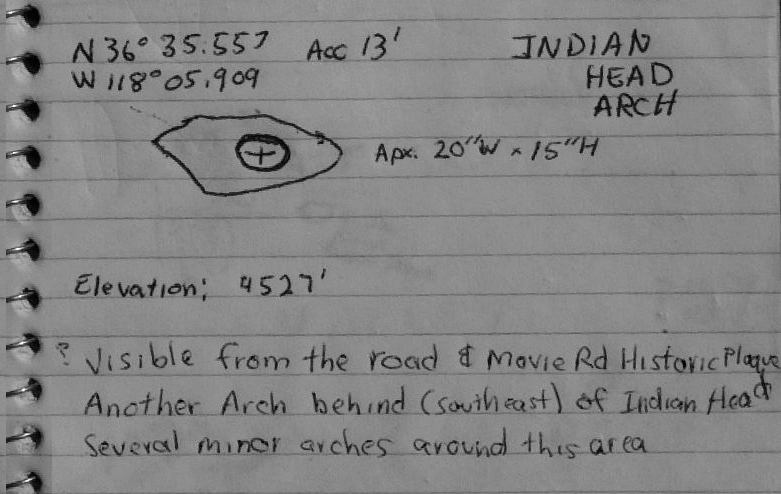 N 36° 35.557 Acc 13' INDIAN
W 118° 05.909 HEAD
ARCH
Apx. 20"W x 15"H
Elevation; 4527'
? Visible from the road & Movie Rd Historic Plaque
Another Arch behind (southeast) of Indian Head
Several minor arches around this area